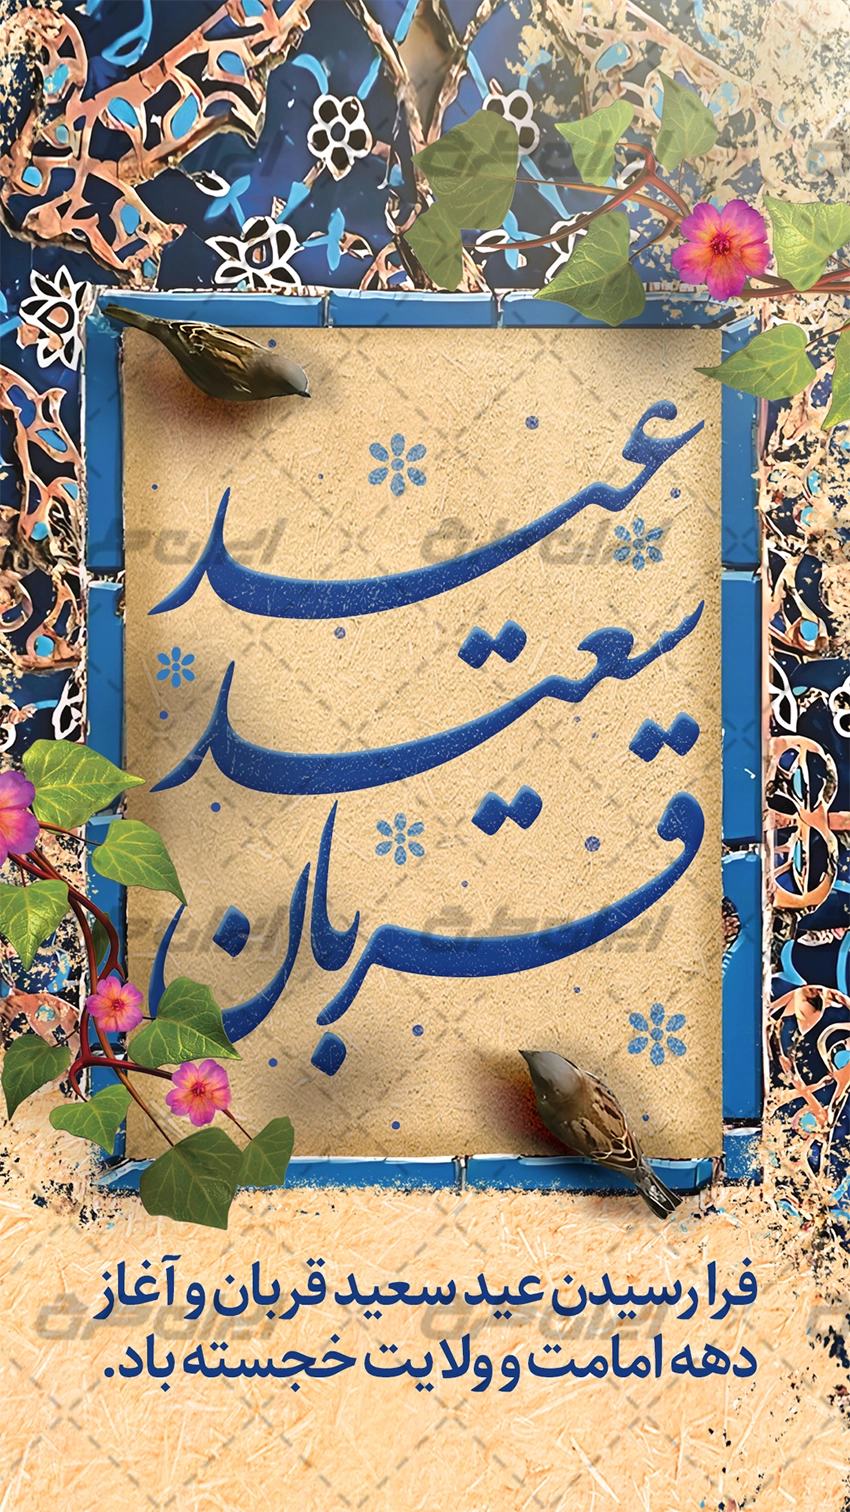 عید
سعید
قربان
فرا رسیدن عید سعید قربان و آغاز
دهه امامت و ولایت خجسته باد.